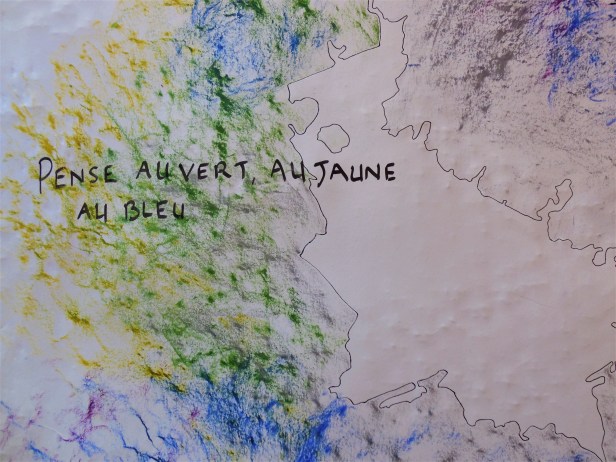 PENSE AU VERT, AU JAUNE
AU BLEU